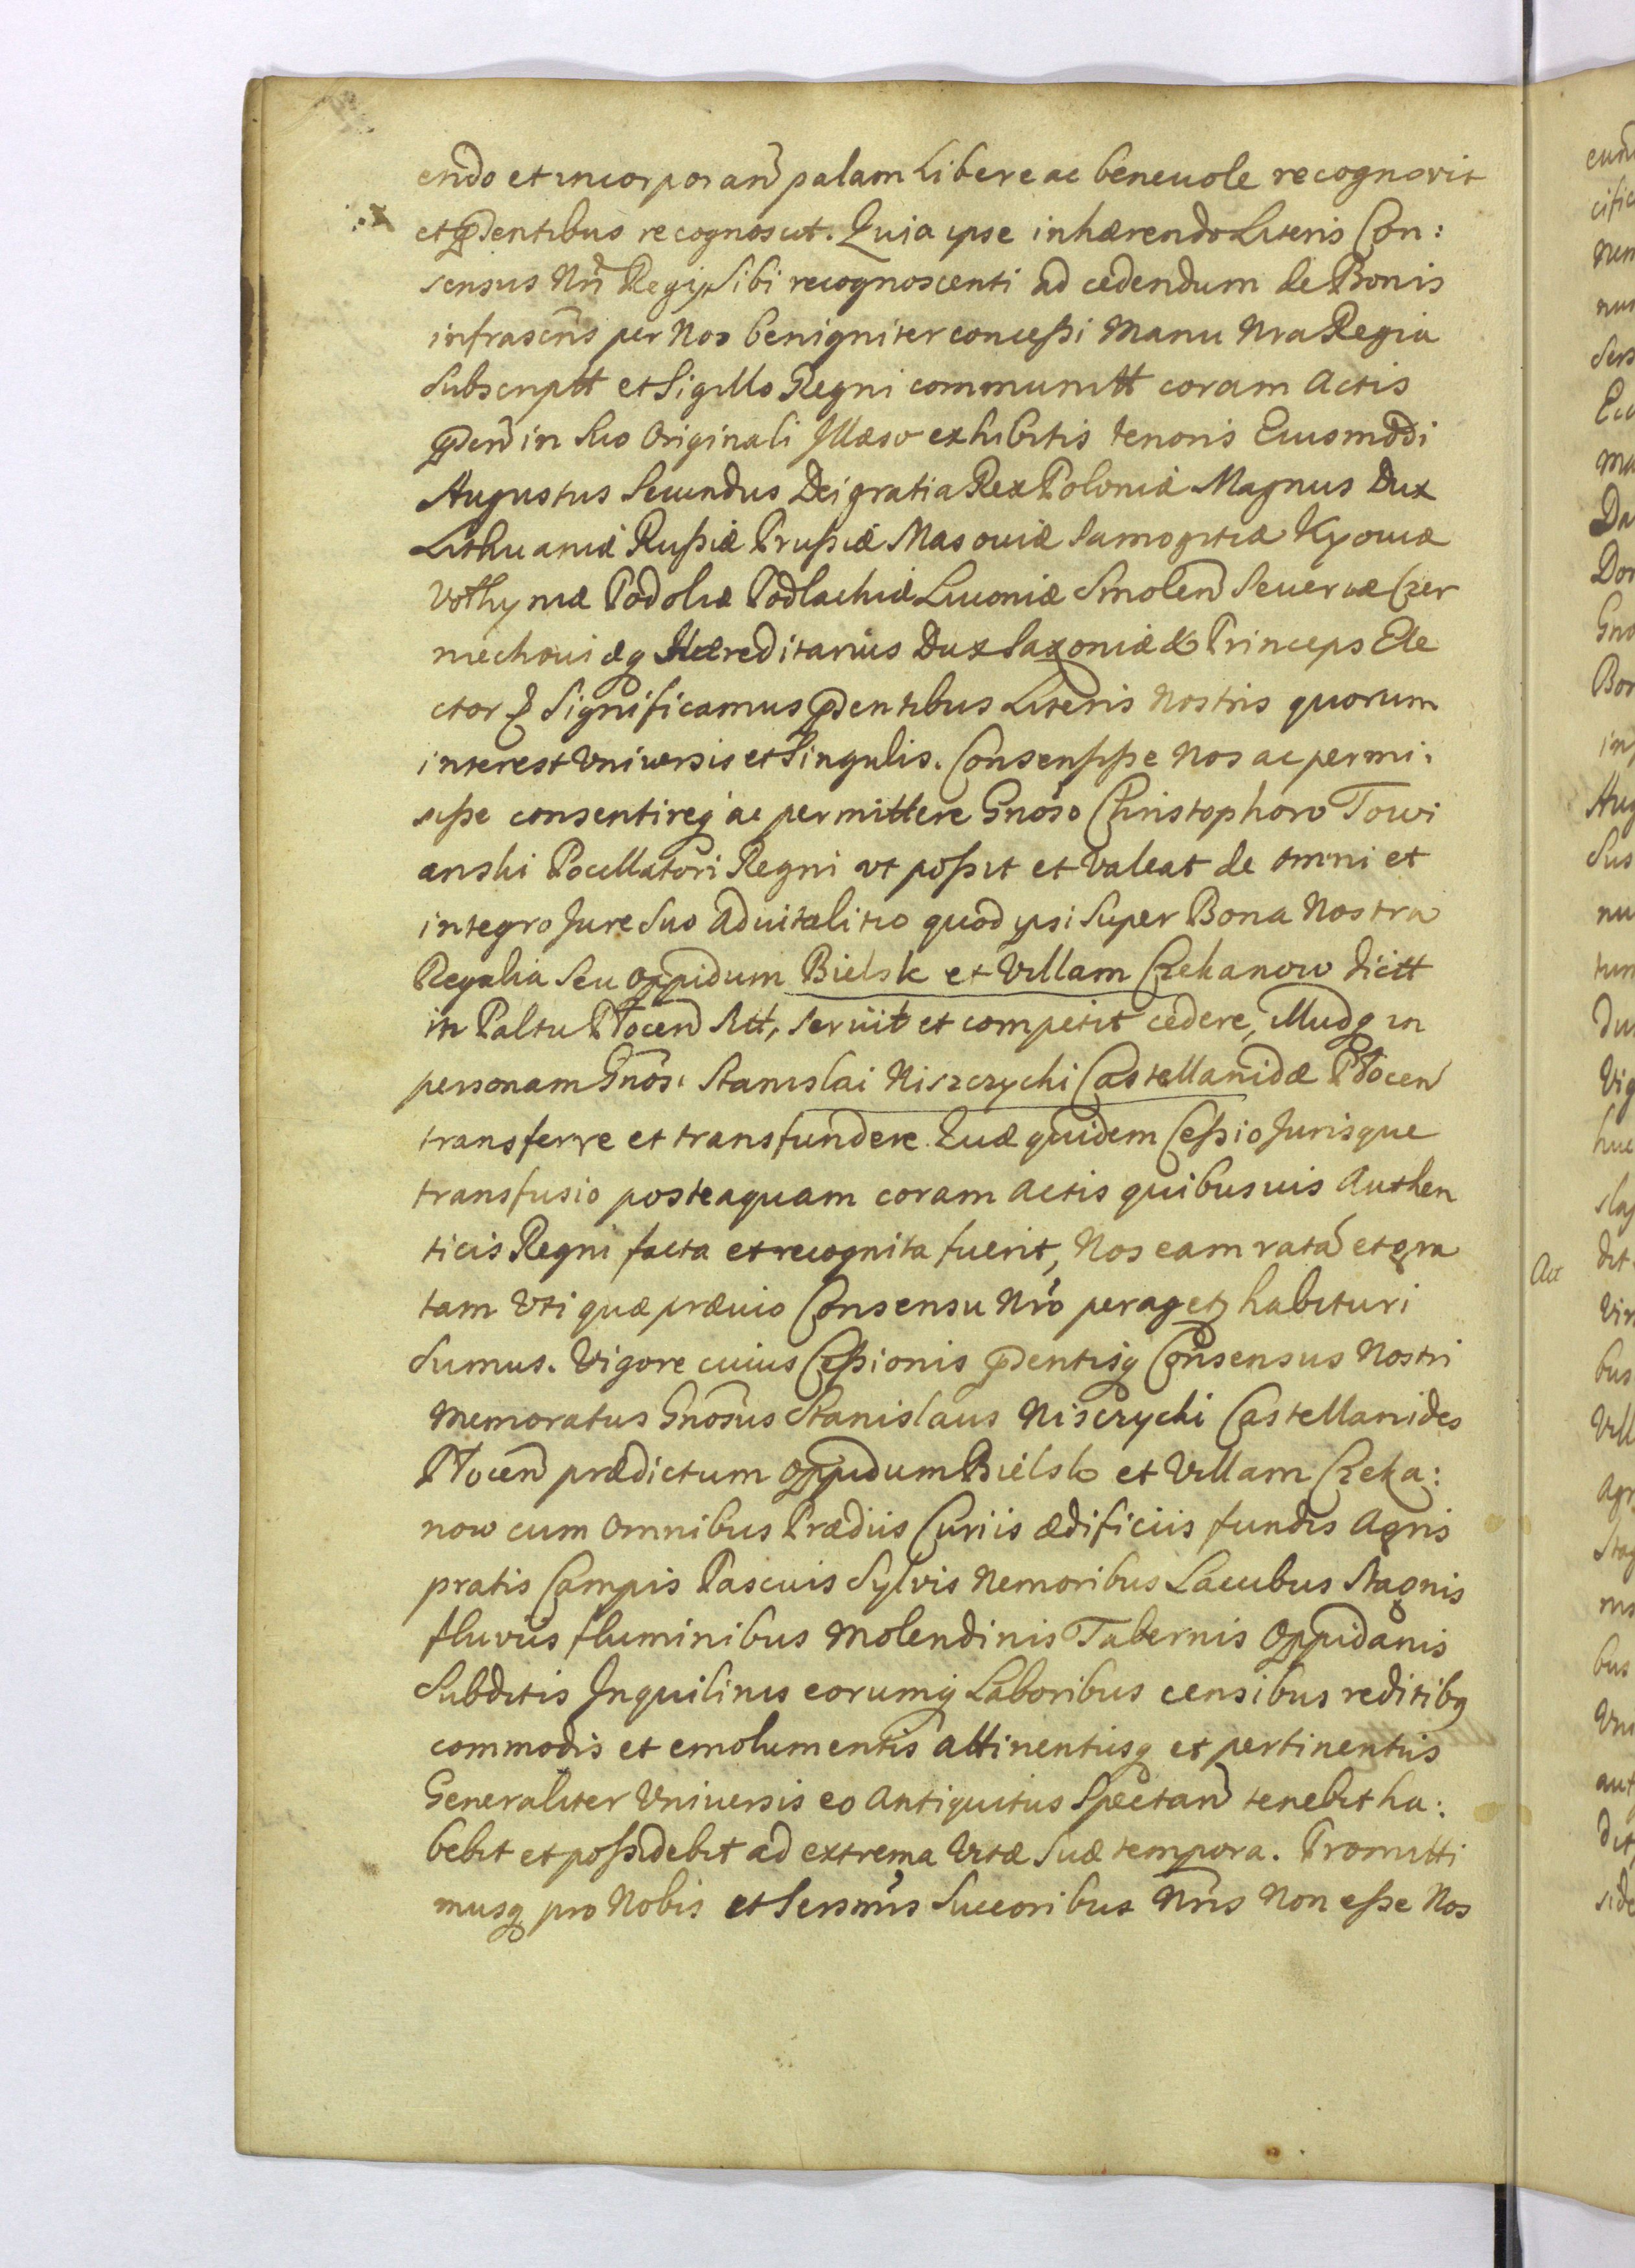 endo et incorporan palam Libere ac beneuole recognovit
et pdentibus recognoscit. Quia ipse inhærendo Literis Con:
sensus Nri Regij Sibi recognoscenti ad cedendum de Bonis
infrascris per Nos benigniter conceßi Manu Nra Regia
Subscriptt et Sigillo Regni communitt coram Actis
pden in Suo Originali Jllæso exhibitis tenoris Eiusmodi
Augustus Secundus Dei gratia Rex Poloniæ Magnus Dux
Lithuaniæ Rußiæ Prußiæ Masouiæ Samogitiæ Kyouiæ
Volhyniæ Podoliæ Podlachiæ Liuoniæ Smolen Seueriæ Czer
niechouiæq Hæreditarius Dux Saxoniæ & Princeps Ele
ctor & Significamus pdentibus Literis Nostris quorum
interest Vniuersis et Singulis. Consensiße Nos ac permi:
siße consentireq ac permittere Gnoso Christophoro Towi
anski Pocillatori Regni vt poßit et Valeat de omni et
integro Jure Suo aduitalitio quod ipsi Super Bona Nostra
Regalia Seu Oppidum Bielsk et Villam Czekanow dictt
in Paltu Plocen Sitt, seruit et competit cedere, illudq in
personam Gnosi Stanislai Niszczycki Castellanidæ Plocen
transferre et transfundere. Quæ quidem Ceßio Jurisque
transfusio posteaquam coram Actis quibusuis Authen
ticis Regni facta et recognita fuerit, Nos eam ratam et gra
tam Vti quæ præuio Consensu Nro peragetz habituri
Sumus. Vigore cuius Ceßionis pdentisq Consensus Nostri
Memoratus Gnosus Stanislaus Niszczycki Castellanides
Plocen prædictum Oppidum Bielsk et Villam Czeka:
now cum Omnibus Prædiis Curiis ædificiis fundis Agris
pratis Campis Pascuis Sylvis Nemoribus Lacubus Stagnis
fluviis fluminibus Molendinis Tabernis Oppidanis
Subditis Jnquilinis eorumq Laboribus censibus reditibq
commodis et emolumentis attinentiisq et pertinentiis
Generaliter Vniuersis eo Antiquitus Spectan tenebit ha:
bebit et poßidebit ad extrema Vitæ Suæ tempora. Promitti
musq pro Nobis et Sersmis Succoribus Nris Non eße Nos